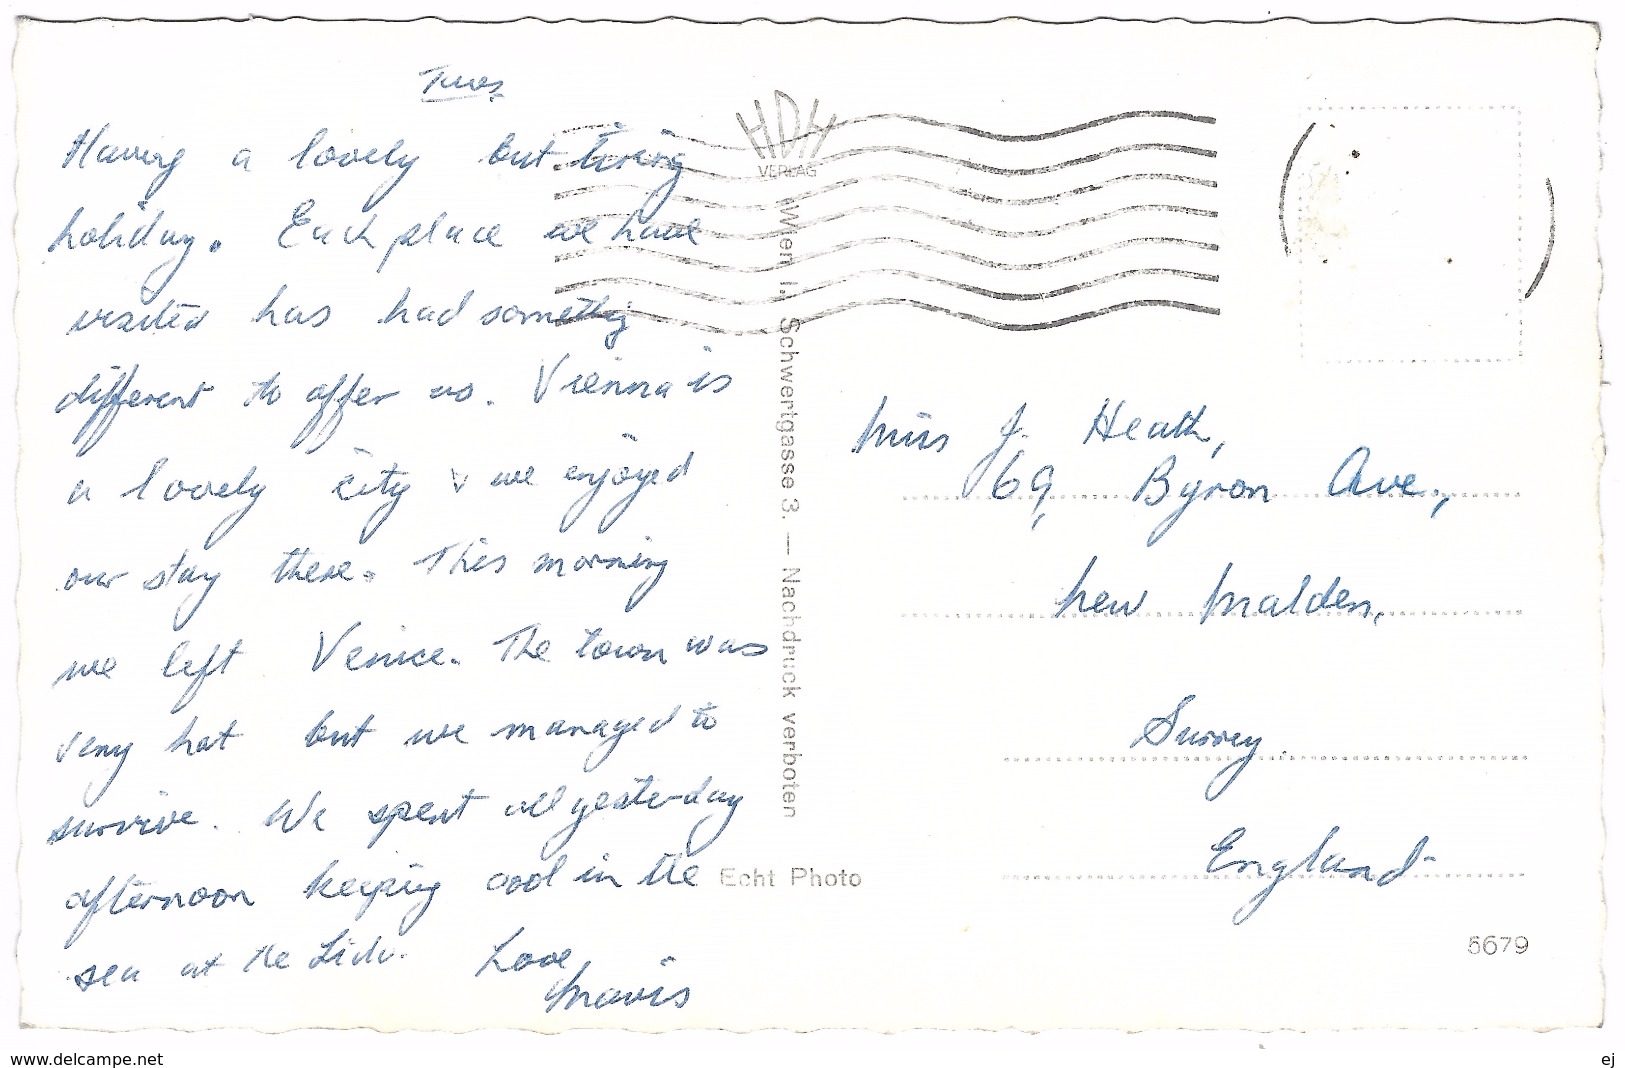 Tues.
Having a lovely but tiring
holiday. Each place we have
visited has had something
different to offer us. Vienna is
a lovely city & we enjoyed
our stay there. This morning
we left Venice. The town was
very hot but we managed to
survive. We spent all yesterday
afternoon keeping cool in the
sea at the Lido. Love,
Mavis
HDH
VERLAG
Wien I., Schwertgasse 3. — Nachdruck verboten
Echt Photo
Miss J. Heath,
69, Byron Ave.,
New Malden,
Surrey.
England.
5679
www.delcampe.net
ej